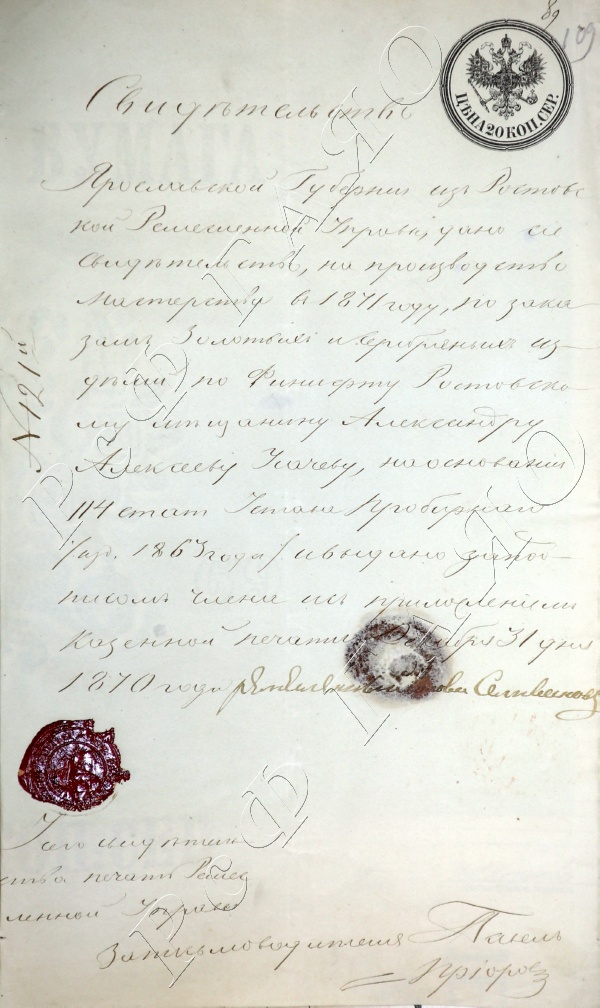 89
109
ЦѢНА 20 КОП. СЕР.
Свидѣтельство
Ярославской Губерніи изъ Ростовс
кой Ремесленной Управы, дано сіе
свидѣтельство, на производство
мастерства в 1871 году, по зака
замъ Золотыхъ и серебреныхъ из-
дѣлій, по Финифту Ростовско-
му мѣщанину Александру
Алексееву Усачеву, на основаніи
114 стат Устава Пробирнаго
/изд. 1863 года/ и выдано за под-
писомъ члена и съ приложеніемъ
казенной печати, Декабря 31 дня
1870 года Селивановъ
№ 121й
У сего свидѣтель
ства печать Ремес
ленной Управы
За письмоводителя Павелъ
Пріоровъ
РОСФОТО